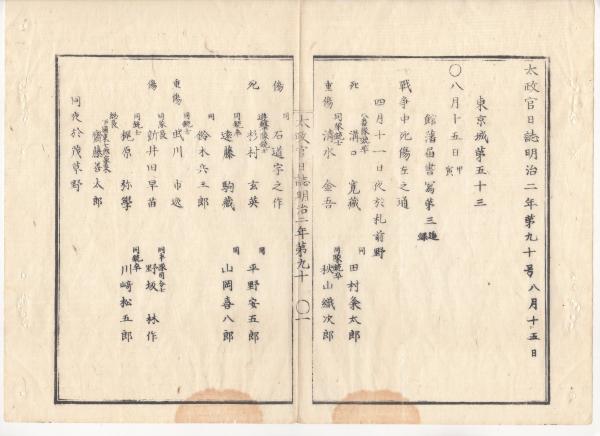 太政官日誌明治二年第九十号 八月十五日
東京城第五十三
○八月十五日 甲寅
館藩届書写 第三 追録
戦争中死傷左之通
四月十一日夜於札前野
死 溝口寛蔵 同 田村粂太郎
重傷 同隊銃士 清水金吾 同隊銃卒 秋山織次郎
太政官日誌明治二年第九十 ○一
傷 同 石道字之作
死 杉村玄英 同 平野安五郎
同銃卒 遠藤駒蔵 同 山岡喜八郎
同 鈴木六三郎
重傷 同銃士 蚊川市逸
傷 同隊長 新井田早苗 野坂林作
同銃士 梶原弥学 同銃卒 川崎松五郎
齋藤善太郎
同夜於茂草野